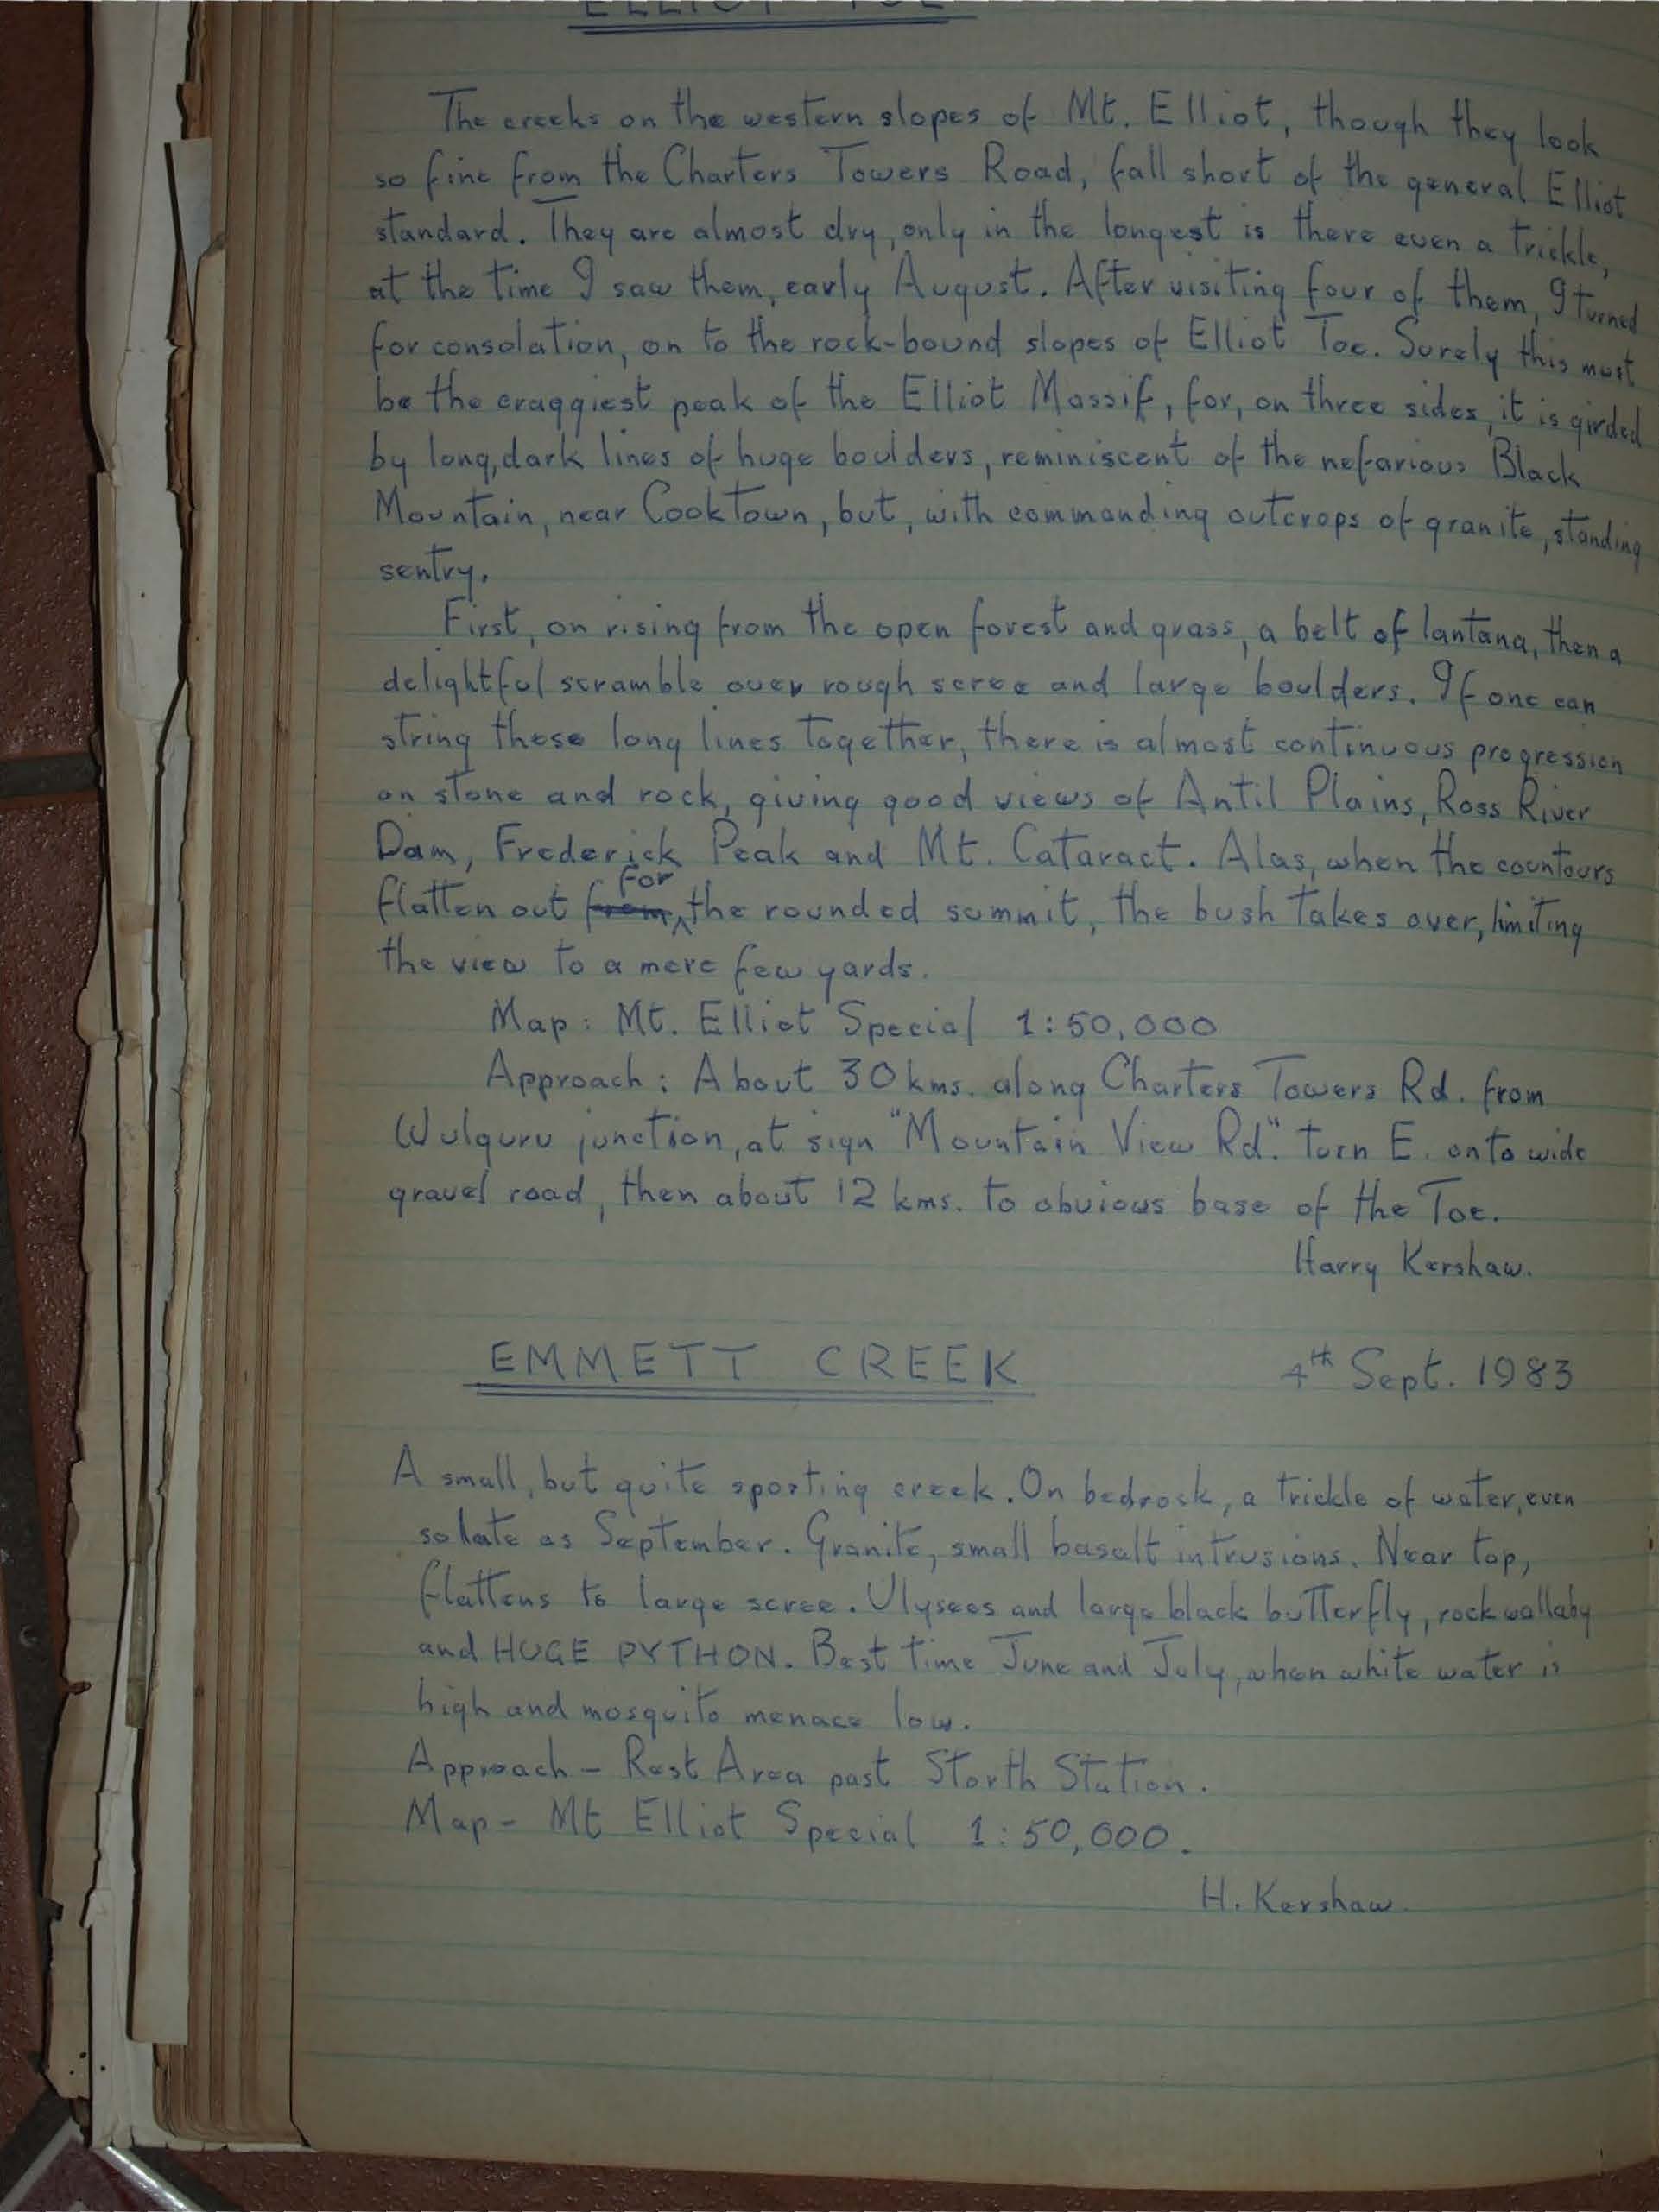 ELLIOT TOE
The creeks on the western slopes of Mt. Elliot, though they look
so fine from the Charters Towers Road, fall short of the general Elliot
standard. They are almost dry, only in the longest is there even a trickle,
at the time I saw them, early August. After visiting four of them, I turned
for consolation, on to the rock-bound slopes of Elliot Toe. Surely this must
be the craggiest peak of the Elliot Massif, for, on three sides, it is girded
by long, dark lines of huge boulders, reminiscent of the nefarious Black
Mountain, near Cooktown, but, with commanding outcrops of granite, standing
sentry.
First, on rising from the open forest and grass, a belt of lantana, then a
delightful scramble over rough scree and large boulders. If one can
string these long lines together, there is almost continuous progression
on stone and rock, giving good views of Antil Plains, Ross River
Dam, Frederick Peak and Mt. Cataract. Alas, when the countours
flatten out from for the rounded summit, the bush takes over, limiting
the view to a mere few yards.
Map: Mt. Elliot Special 1:50,000
Approach: About 30 kms. along Charters Towers Rd. from
Wulguru junction, at sign "Mountain View Rd". turn E. onto wide
gravel road, then about 12 kms. to obvious base of the Toe.
Harry Kershaw.
EMMETT CREEK 4th Sept. 1983
A small, but quite sporting creek. On bedrock, a trickle of water, even
so late as September. Granite, small basalt intrusions. Near top,
flattens to large scree. Ulysees and large black butterfly, rock wallaby
and HUGE PYTHON. Best time June and July, when white water is
high and mosquito menace low.
Approach - Rest Area past Storth Station.
Map - Mt Elliot Special 1:50,000.
H. Kershaw.